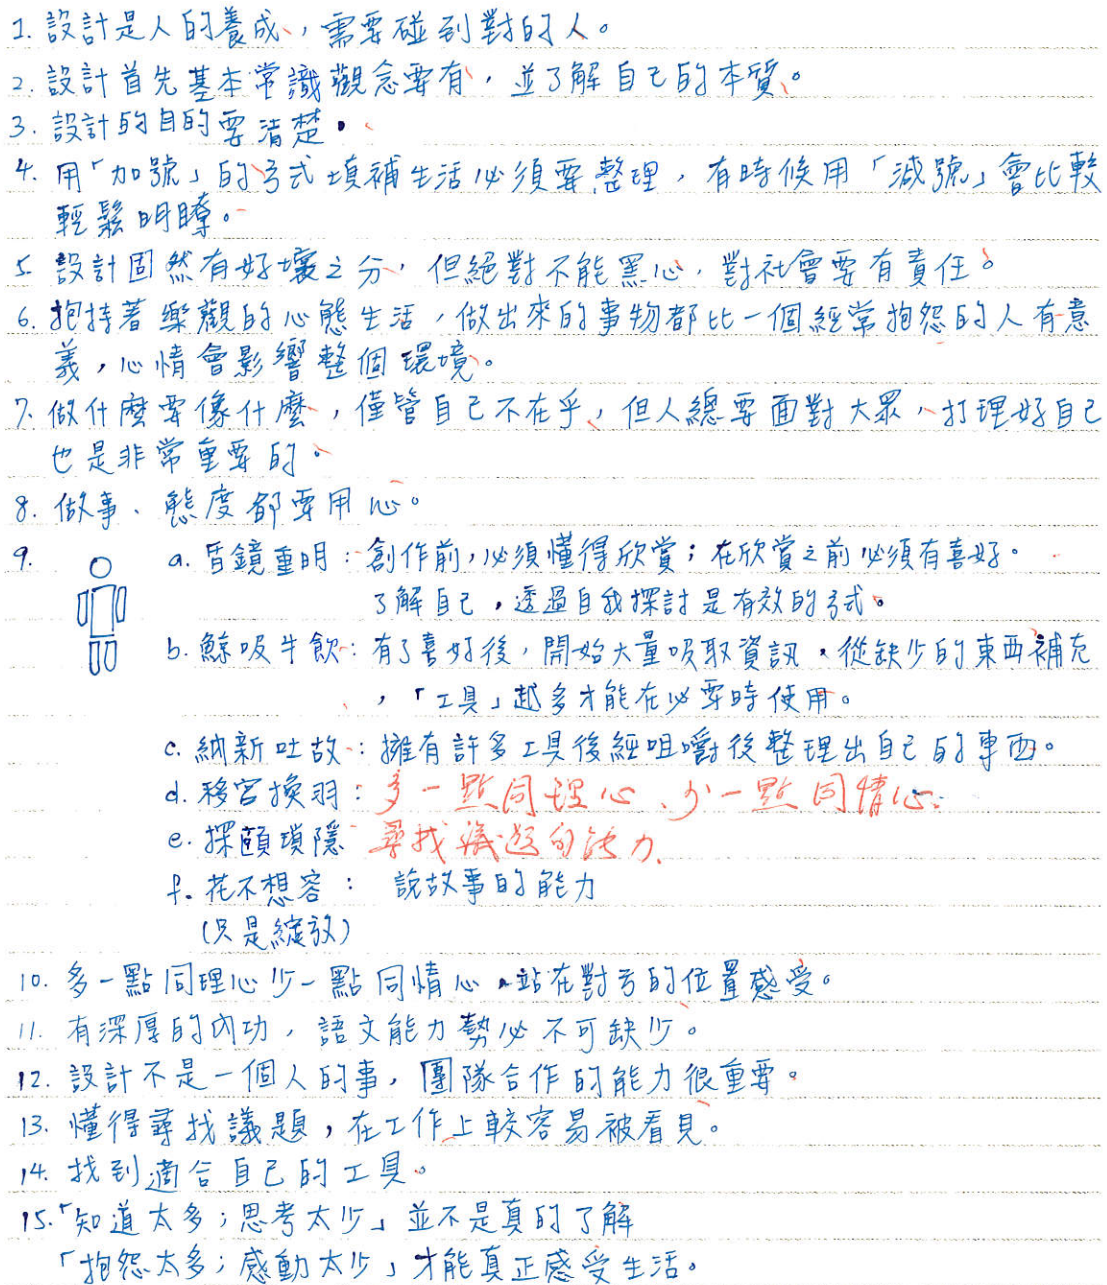 1. 設計是人的養成，需要碰到對的人。
2. 設計首先基本常識觀念要有，並了解自己的本質。
3. 設計的目的要清楚。
4. 用「加號」的方式填補生活必須要整理，有時候用「減號」會比較
輕鬆明瞭。
5. 設計固然有好壞之分，但絕對不能黑心，對社會要有責任。
6. 抱持著樂觀的心態生活，做出來的事物都比一個經常抱怨的人有意
義，心情會影響整個環境。
7. 做什麼要像什麼，僅管自己不在乎，但人總要面對大眾，打理好自己
也是非常重要的。
8. 做事、態度都要用心。
9.
a. 昏鏡重明：創作前，必須懂得欣賞；在欣賞之前必須有喜好。
了解自己，透過自我探討是有效的方式。
b. 鯨吸牛飲：有了喜好後，開始大量吸取資訊，從缺少的東西補充
，「工具」越多才能在必要時使用。
c. 納新吐故：擁有許多工具後經咀嚼後整理出自己的東西。
d. 移宮換羽：多一點同理心、少一點同情心.
e. 探頤瑣隱 尋找議題的能力.
f. 花不想容： 說故事的能力
(只是綻放)
10. 多一點同理心少一點同情心，站在對方的位置感受。
11. 有深厚的內功，語文能力勢必不可缺少。
12. 設計不是一個人的事，團隊合作的能力很重要。
13. 懂得尋找議題，在工作上較容易被看見。
14. 找到適合自己的工具。
15.「知道太多；思考太少」並不是真的了解
「抱怨太多；感動太少」才能真正感受生活。